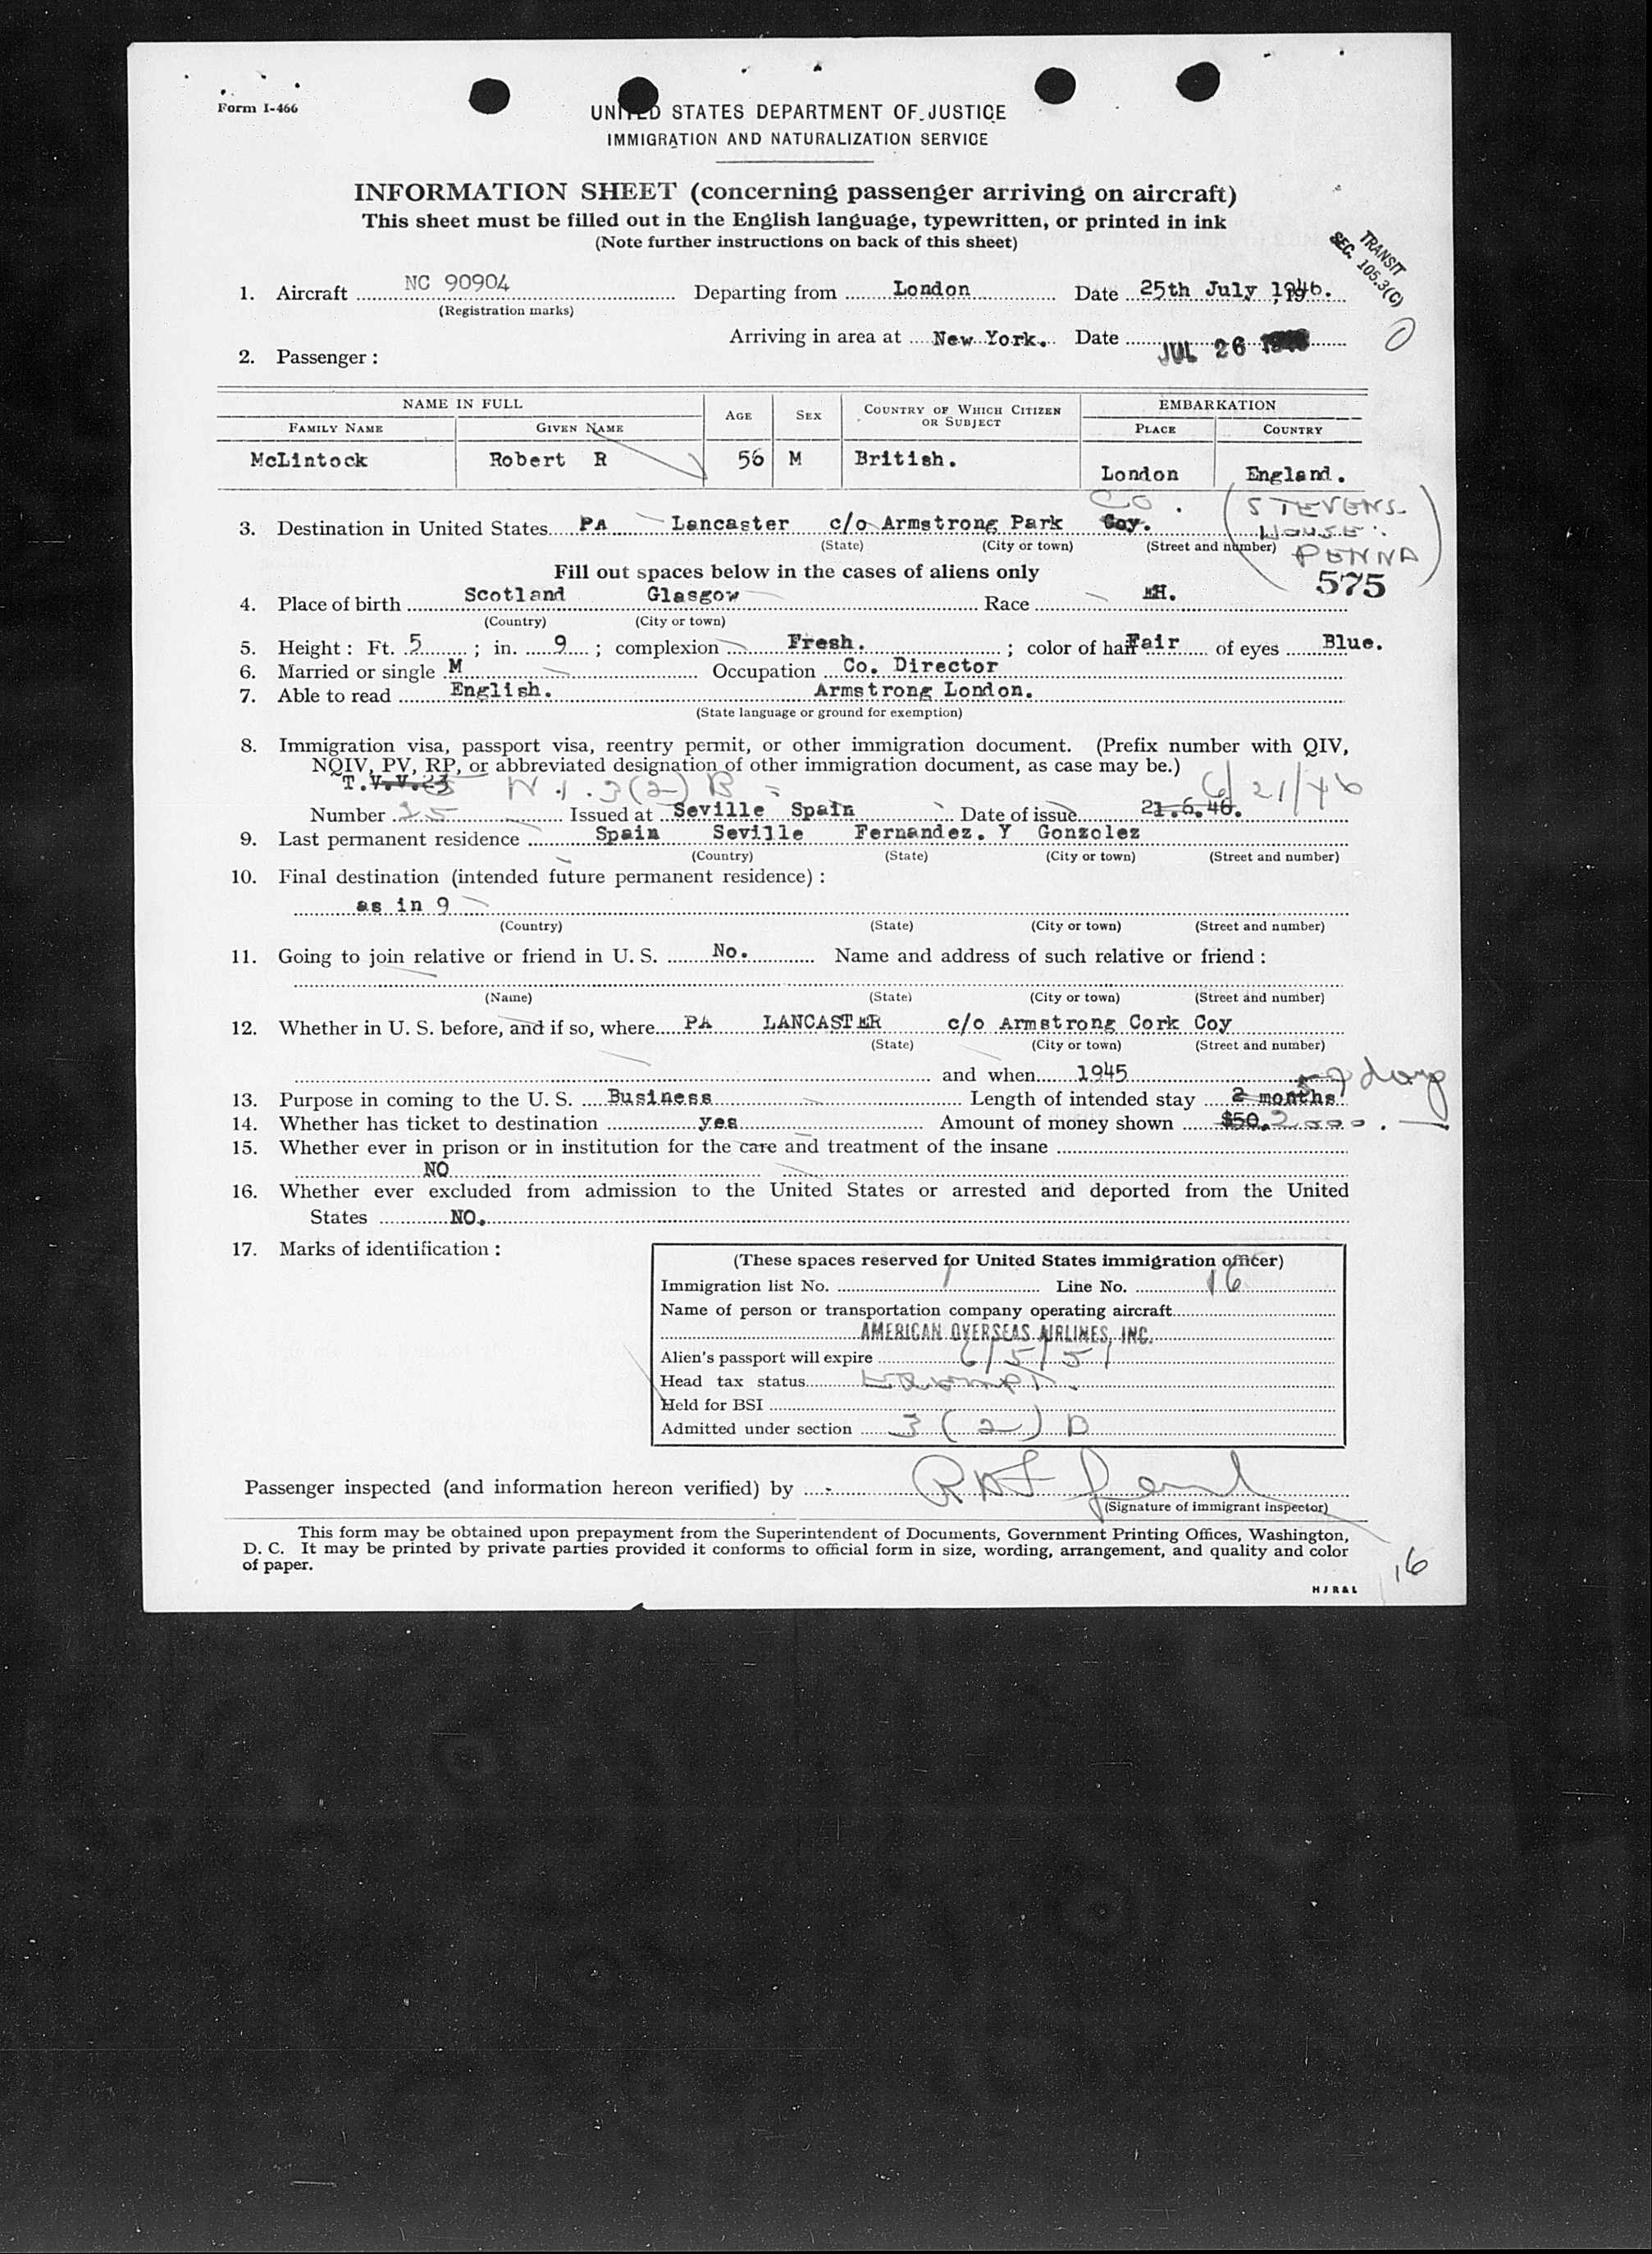 Form I-466
UNITED STATES DEPARTMENT OF JUSTICE
IMMIGRATION AND NATURALIZATION SERVICE
INFORMATION SHEET (concerning passenger arriving on aircraft)
This sheet must be filled out in the English language, typewritten, or printed in ink
(Note further instructions on back of this sheet)
TRANSIT
SEC. 105.3(C)
1. Aircraft NC 90904 Departing from London Date 25th July 1946.
(Registration marks)
Arriving in area at New York. Date JUL 26
2. Passenger :
NAME IN FULL AGE SEX COUNTRY OF WHICH CITIZEN OR SUBJECT EMBARKATION
FAMILY NAME GIVEN NAME PLACE COUNTRY
McLintock Robert R 56 M British. London England.
CO. (STEVENS
HOUSE:
PENNA)
3. Destination in United States PA Lancaster c/o Armstrong Park Coy.
(State) (City or town) (Street and number)
Fill out spaces below in the cases of aliens only
575
4. Place of birth Scotland Glasgow Race H.
(Country) (City or town)
5. Height : Ft. 5 ; in. 9 ; complexion Fresh. ; color of hair Fair of eyes Blue.
6. Married or single M Occupation Co. Director
7. Able to read English. Armstrong London.
(State language or ground for exemption)
8. Immigration visa, passport visa, reentry permit, or other immigration document. (Prefix number with QIV,
NQIV, PV, RP, or abbreviated designation of other immigration document, as case may be.)
T.V.V. N.I. 3(2) B 6/21/46
Number 25 Issued at Seville Spain Date of issue 21.6.46.
9. Last permanent residence Spain Seville Fernandez. Y Gonzolez
(Country) (State) (City or town) (Street and number)
10. Final destination (intended future permanent residence) :
as in 9
(Country) (State) (City or town) (Street and number)
11. Going to join relative or friend in U. S. No. Name and address of such relative or friend :
(Name) (State) (City or town) (Street and number)
12. Whether in U. S. before, and if so, where PA LANCASTER c/o Armstrong Cork Coy
(State) (City or town) (Street and number)
and when 1945
days
13. Purpose in coming to the U. S. Business Length of intended stay 2 months
14. Whether has ticket to destination yes Amount of money shown $50. 2000.
15. Whether ever in prison or in institution for the care and treatment of the insane
NO
16. Whether ever excluded from admission to the United States or arrested and deported from the United
States NO.
17. Marks of identification :
(These spaces reserved for United States immigration officer)
Immigration list No. 1 Line No. 16
Name of person or transportation company operating aircraft
AMERICAN OVERSEAS AIRLINES, INC.
Alien's passport will expire 6/5/51
Head tax status Exempt.
Held for BSI
Admitted under section 3 (2) B
Passenger inspected (and information hereon verified) by
(Signature of immigrant inspector)
This form may be obtained upon prepayment from the Superintendent of Documents, Government Printing Offices, Washington,
D. C. It may be printed by private parties provided it conforms to official form in size, wording, arrangement, and quality and color
of paper.
HJR&L
16